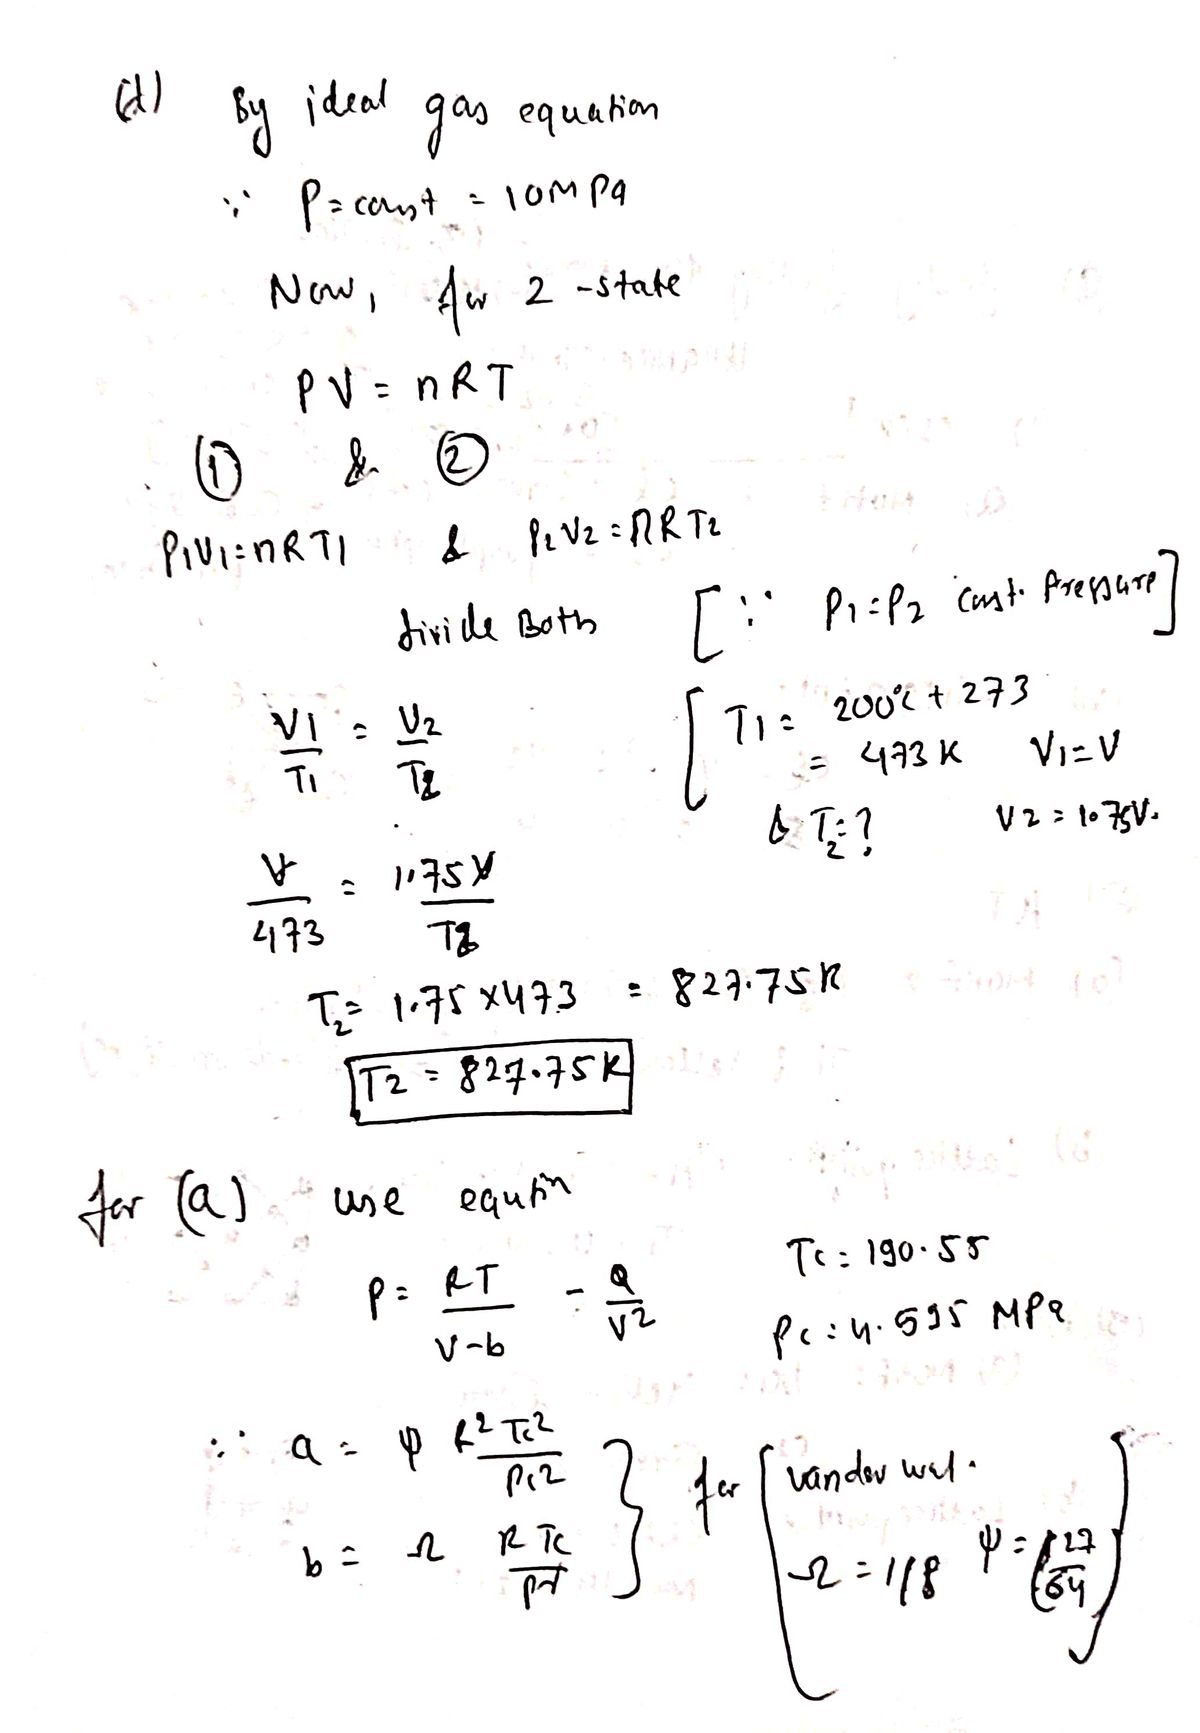 (d) By ideal gas equation
∵ P = const = 10 MPa
Now, for 2 - state
PV = nRT
① & ②
P1V1 = nRT1 & P2V2 = nRT2
divide Both [∵ P1 = P2 Const. Pressure]
V1/T1 = V2/T2 [T1 = 200°C + 273
= 473 K V1 = V
& T2 = ? V2 = 1.75V.
V/473 = 1.75V/T2
T2 = 1.75 × 473 = 827.75K
T2 = 827.75K
for (a) use equtin
P = RT/V-b - a/V2 Tc = 190.55
Pc = 4.595 MPa
∵ a = ψ R2 Tc2/Pc2 } for [vander wal.
b = Ω R Tc/Pc Ω = 1/8 ψ = 27/64]